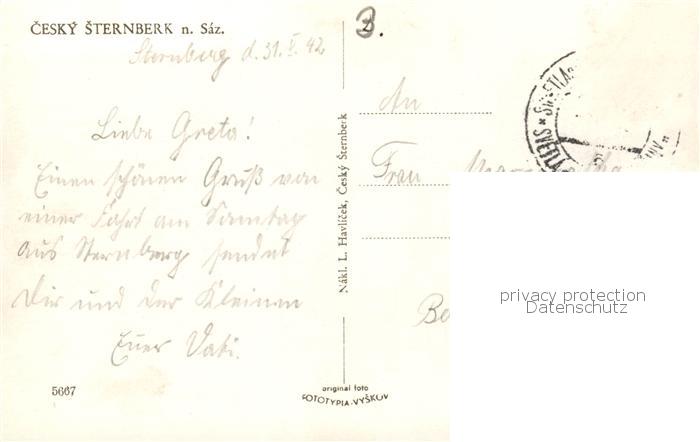 ČESKÝ ŠTERNBERK n. Sáz.
3.
Sternberg d. 31. V. 42
Liebe Greta!
Einen schönen Gruß von
einer Fahrt am Samstag
aus Sternberg sendet
Dir und der Kleinen
Euer Vati.
5667
Nákl. L. Havlíček, Český Šternberk
original foto
FOTOTYPIA-VYŠKOV
An
Frau
privacy protection
Datenschutz